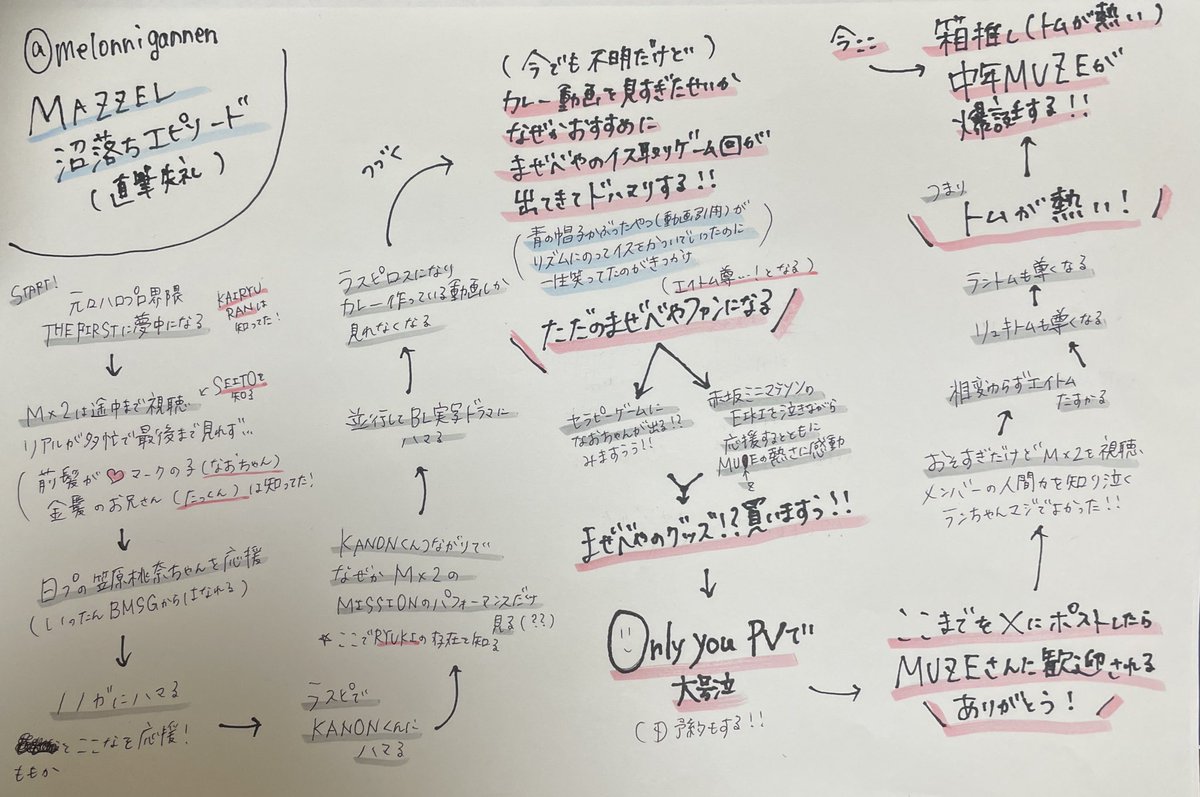 @melonnigannen
MAZZEL
沼落ちエピソード
(直筆失礼)
START!
元ハロプロ界隈
THE FIRSTに夢中になる
KAIRYU
RANは
知ってた!
M×2は途中まで視聴
SEITOを
知る
リアルが多忙で最後まで見れず…
(前髪が♡マークの子(なおちゃん)
金髪のお兄さん(たっくん)は知ってた!
日プの笠原桃奈ちゃんを応援
(いったんBMSGからはなれる)
ノノガにハマる
とここなを応援!
ももか
ラスピで
KANONくんに
ハマる
KANONくんつながりで
なぜかM×2の
MISSIONのパフォーマンスだけ
見る(??)
*ここでRYUKIの存在を知る
並行してBL実写ドラマに
ハマる
ラスピロスになり
カレー作っている動画しか
見れなくなる
つづく
(今でも不明だけど)
カレー動画を見すぎたせいか
なぜかおすすめに
まぜべやのイス取りゲーム回が
出てきてドハマりする!!
(青の帽子かぶったやつ(動画引用)が
リズムにのってイスをかついでいったのに
一生笑ってたのがきっかけ)
(エイトム尊…!となる)
ただのまぜべやファンになる
セラピーゲームに
なおちゃんが出る!?
みますぅぅ!!
赤坂ミニマラソンの
EIKIを泣きながら
応援するとともに
MUZEの熱さに感動
まぜべやのグッズ!?買いますぅ!!
Only you PVで
大号泣
(予約もする!!)
ここまでをXにポストしたら
MUZEさんに歓迎される
ありがとう!
おそすぎだけどM×2を視聴、
メンバーの人間力を知り泣く
ランちゃんマジでよかった!!
相変わらずエイトム
たすかる
リュキトムも尊くなる
ラントムも尊くなる
つまり
トムが熱い!
今ここ
箱推し(トムが熱い)
中年MUZEが
爆誕する!!